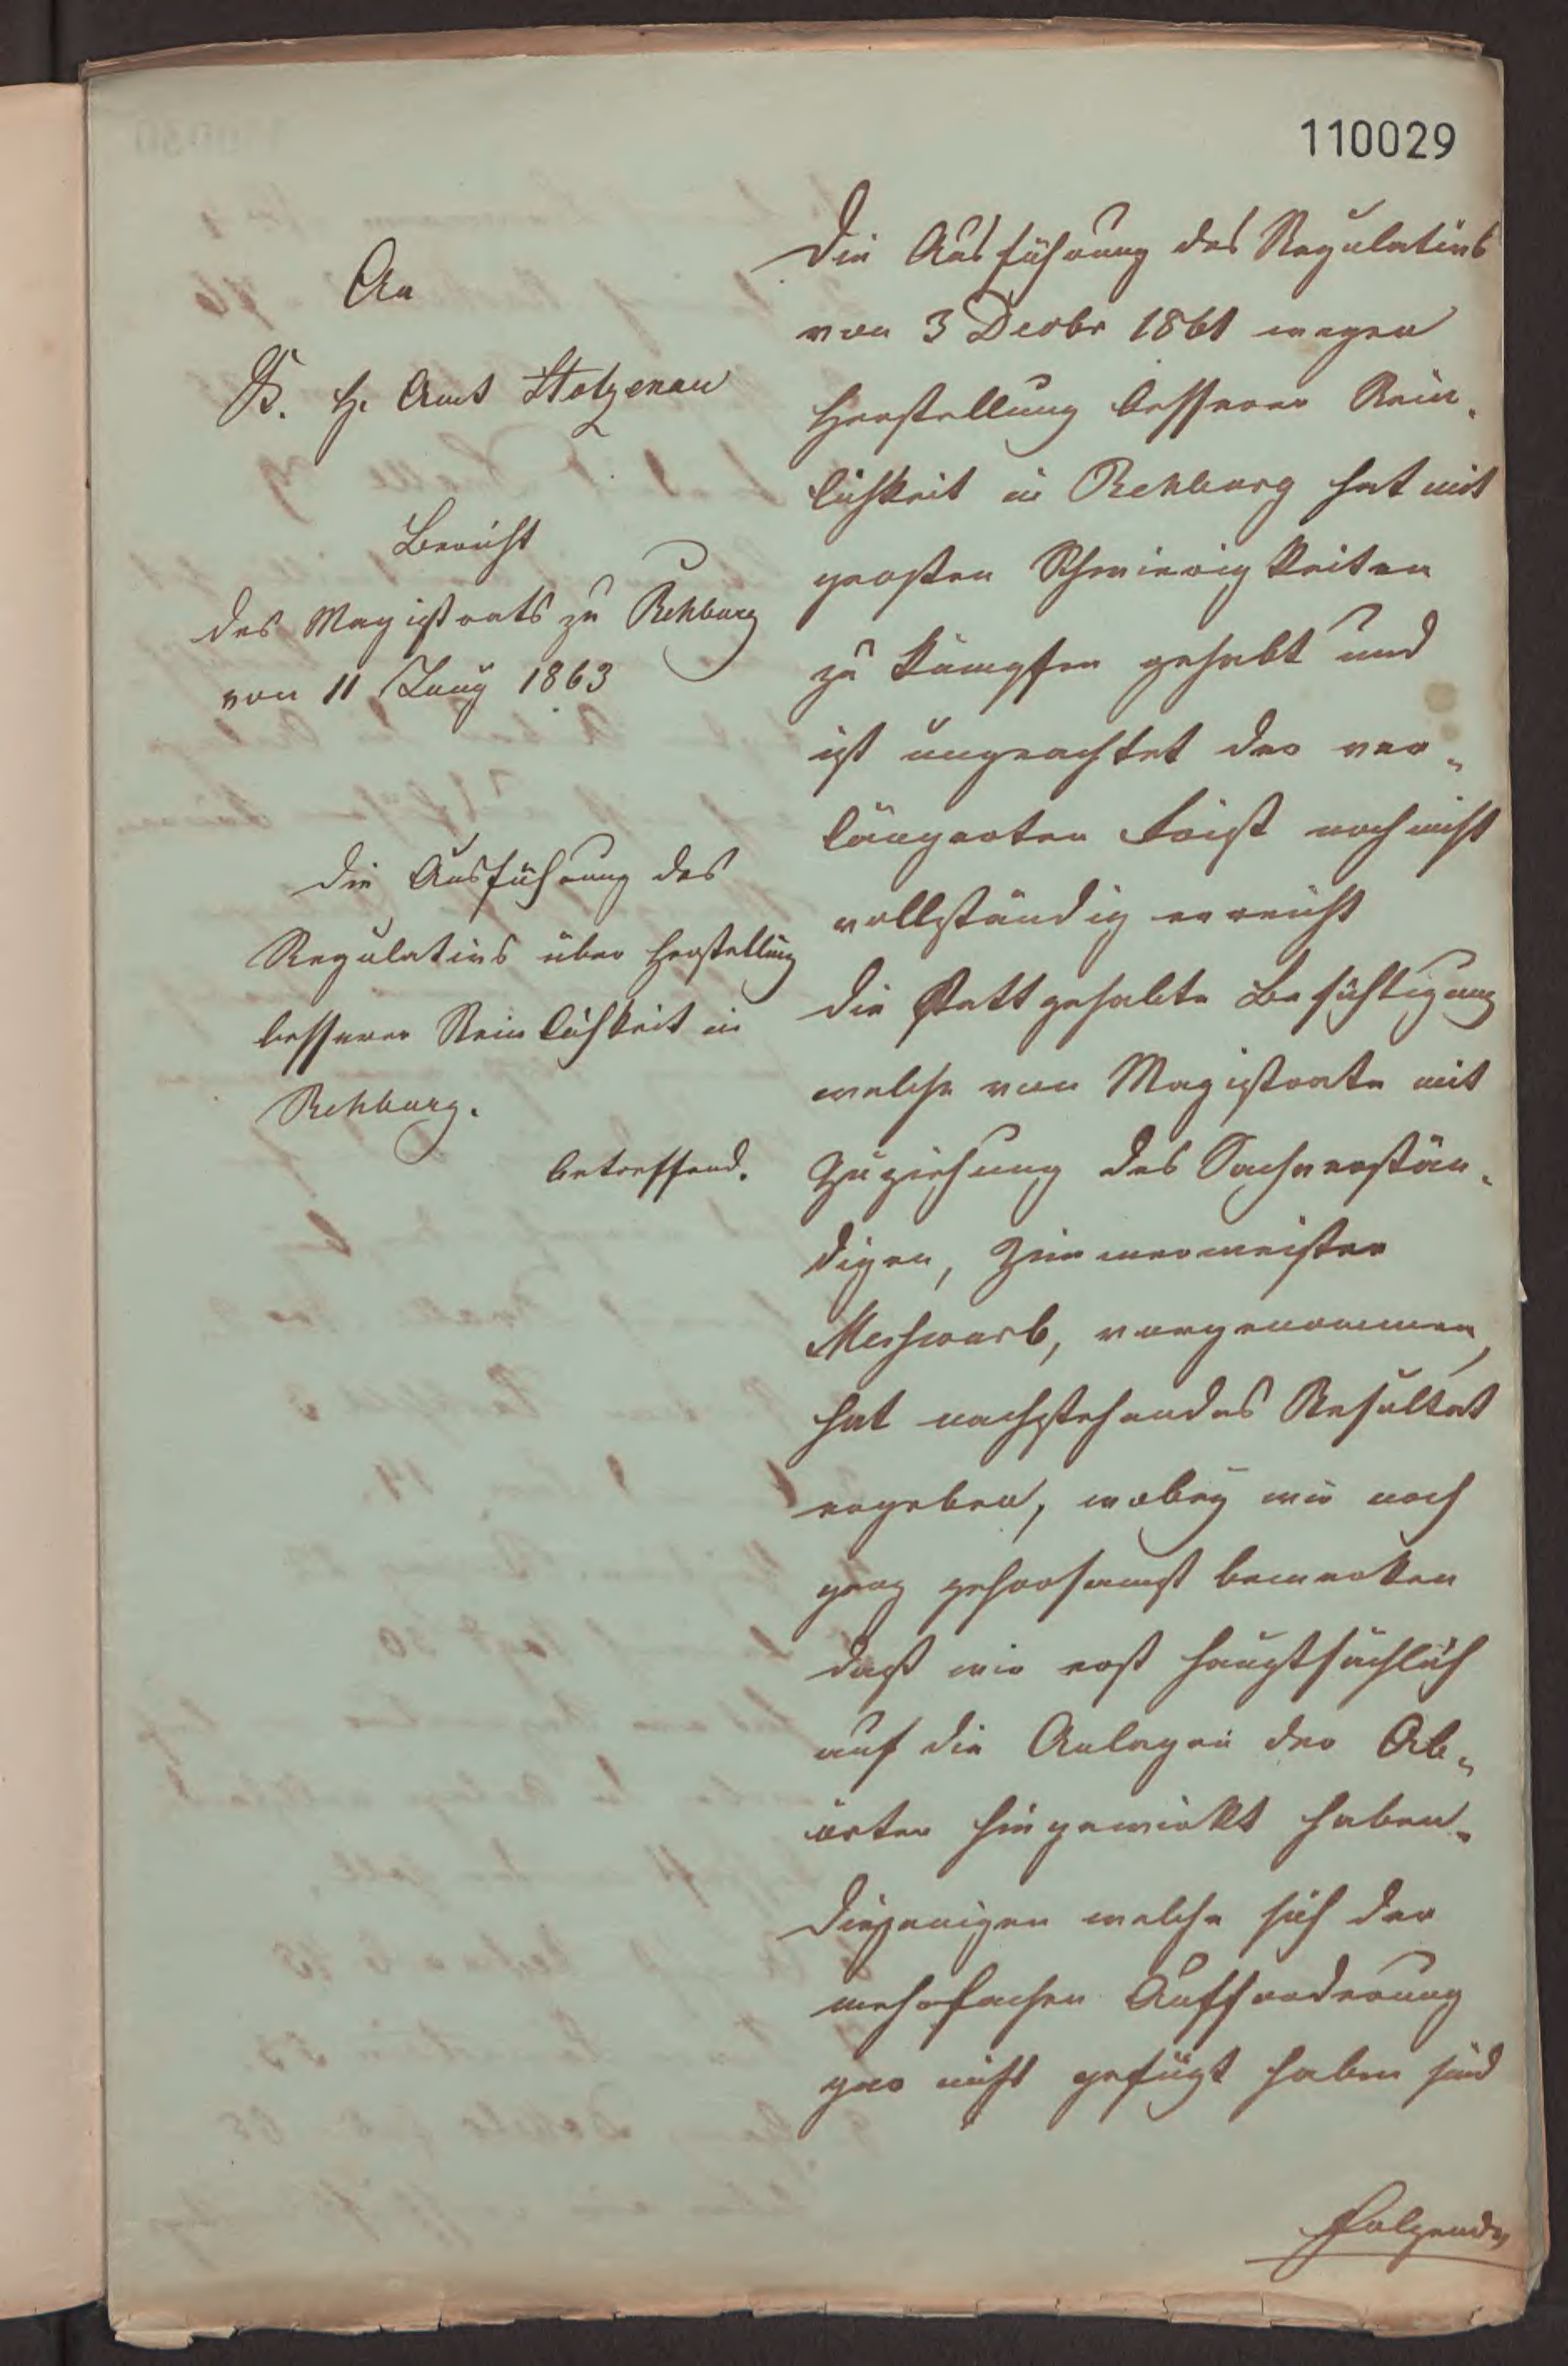 110029
An
K. H. Amt Stolzenau
Bericht
des Magistrats zu Rehburg
von 11 Juny 1863
Die Ausführung des
Regulativs über Herstellung
besserer Reinlichkeit in
Rehburg.
betreffend.
Die Ausführung des Regulativs
von 3 Decbr 1861 wegen
Herstellung besserer Rein-
lichkeit in Rehburg hat mit
großen Schwierigkeiten
zu kämpfen gehabt und
ist ungeachtet der ver-
längerten Frist noch nicht
vollständig erreicht
Die stattgehabte Besichtigung
welche von Magistrate mit
Zuziehung des Sachverstän-
digen, Zimmermeister
Meswarb, vorgenommen,
hat nachstehendes Resultat
ergeben, wobey wir noch
ganz gehorsamst bemerken
daß wir erst hauptsächlich
auf die Anlagen der Ab-
örter hingewirkt haben.
Diejenigen welche sich der
mehrfachen Aufforderung
gar nicht gefügt haben sind
folgende,